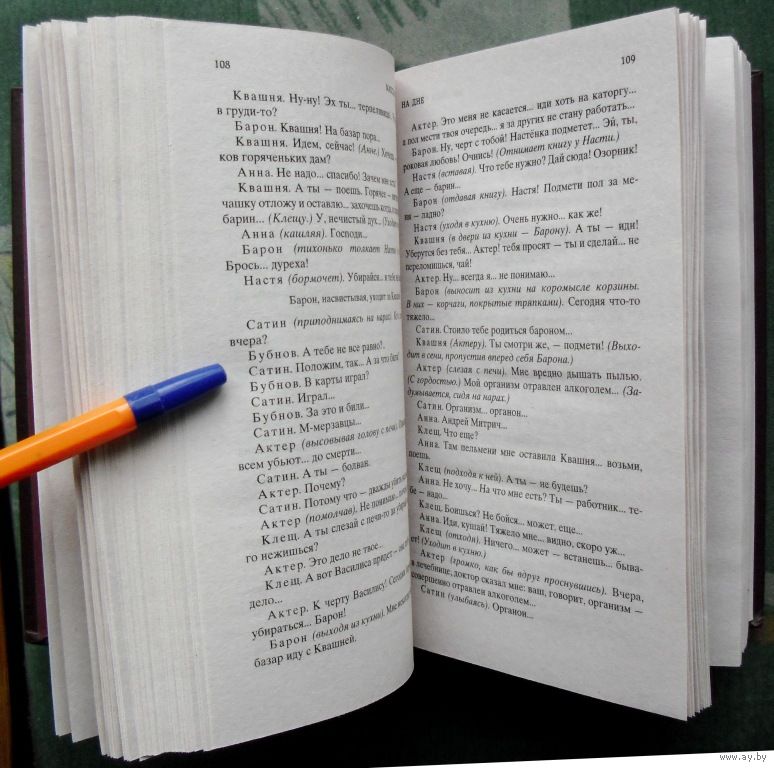 108
Квашня. Ну-ну! Эх ты... терпеливица.
в груди-то?
Барон. Квашня! На базар пора...
Квашня. Идем, сейчас! (Анне.) Хочешь
ков горяченьких дам?
Анна. Не надо... спасибо! Зачем мне есть?
Квашня. А ты — поешь. Горячее —
чашку отложу и оставлю... захочешь когда,
барин... (Клещу.) У, нечистый дух...
Анна (кашляя). Господи...
Барон (тихонько толкает Настю
Брось... дуреха!
Настя (бормочет). Убирайся... я тебе не
Барон, насвистывая, уходит за
Сатин (приподнимаясь на нарах).
вчера?
Бубнов. А тебе не все равно?..
Сатин. Положим, так... А за что били?
Бубнов. В карты играл?
Сатин. Играл...
Бубнов. За это и били...
Сатин. М-мерзавцы...
Актер (высовывая голову с печи).
всем убьют... до смерти...
Сатин. А ты — болван.
Актер. Почему?
Сатин. Потому что — дважды убить
Актер (помолчав). Не понимаю...
Клещ. А ты слезай с печи-то да убирай
го нежишься?
Актер. Это дело не твое...
Клещ. А вот Василиса придет — она
дело...
Актер. К черту Василису! Сегодня
убираться... Барон!
Барон (выходя из кухни). Мне
базар иду с Квашней.
109
НА ДНЕ
Актер. Это меня не касается... иди хоть на каторгу...
а пол мести твоя очередь... я за других не стану работать...
Барон. Ну, черт с тобой! Настёнка подметет... Эй, ты,
роковая любовь! Очнись! (Отнимает книгу у Насти.)
Настя (вставая). Что тебе нужно? Дай сюда! Озорник!
А еще — барин...
Барон (отдавая книгу). Настя! Подмети пол за ме-
ня — ладно?
Настя (уходя в кухню). Очень нужно... как же!
Квашня (в двери из кухни — Барону). А ты — иди!
Уберутся без тебя... Актер! тебя просят — ты и сделай... не
переломишься, чай!
Актер. Ну... всегда я... не понимаю...
Барон (выносит из кухни на коромысле корзины.
В них — корчаги, покрытые тряпками). Сегодня что-то
тяжело...
Сатин. Стоило тебе родиться бароном...
Квашня (Актеру). Ты смотри же, — подмети! (Выхо-
дит в сени, пропустив вперед себя Барона.)
Актер (слезая с печи). Мне вредно дышать пылью.
(С гордостью.) Мой организм отравлен алкоголем... (За-
думывается, сидя на нарах.)
Сатин. Организм... органон...
Анна. Андрей Митрич...
Клещ. Что еще?
Анна. Там пельмени мне оставила Квашня... возьми,
поешь.
Клещ (подходя к ней). А ты — не будешь?
Анна. Не хочу... На что мне есть? Ты — работник... те-
бе — надо...
Клещ. Боишься? Не бойся... может, еще...
Анна. Иди, кушай! Тяжело мне... видно, скоро уж...
Клещ (отходя). Ничего... может — встанешь... быва-
ет! (Уходит в кухню.)
Актер (громко, как бы вдруг проснувшись). Вчера,
в лечебнице, доктор сказал мне: ваш, говорит, организм —
совершенно отравлен алкоголем...
Сатин (улыбаясь). Органон...
www.ay.by